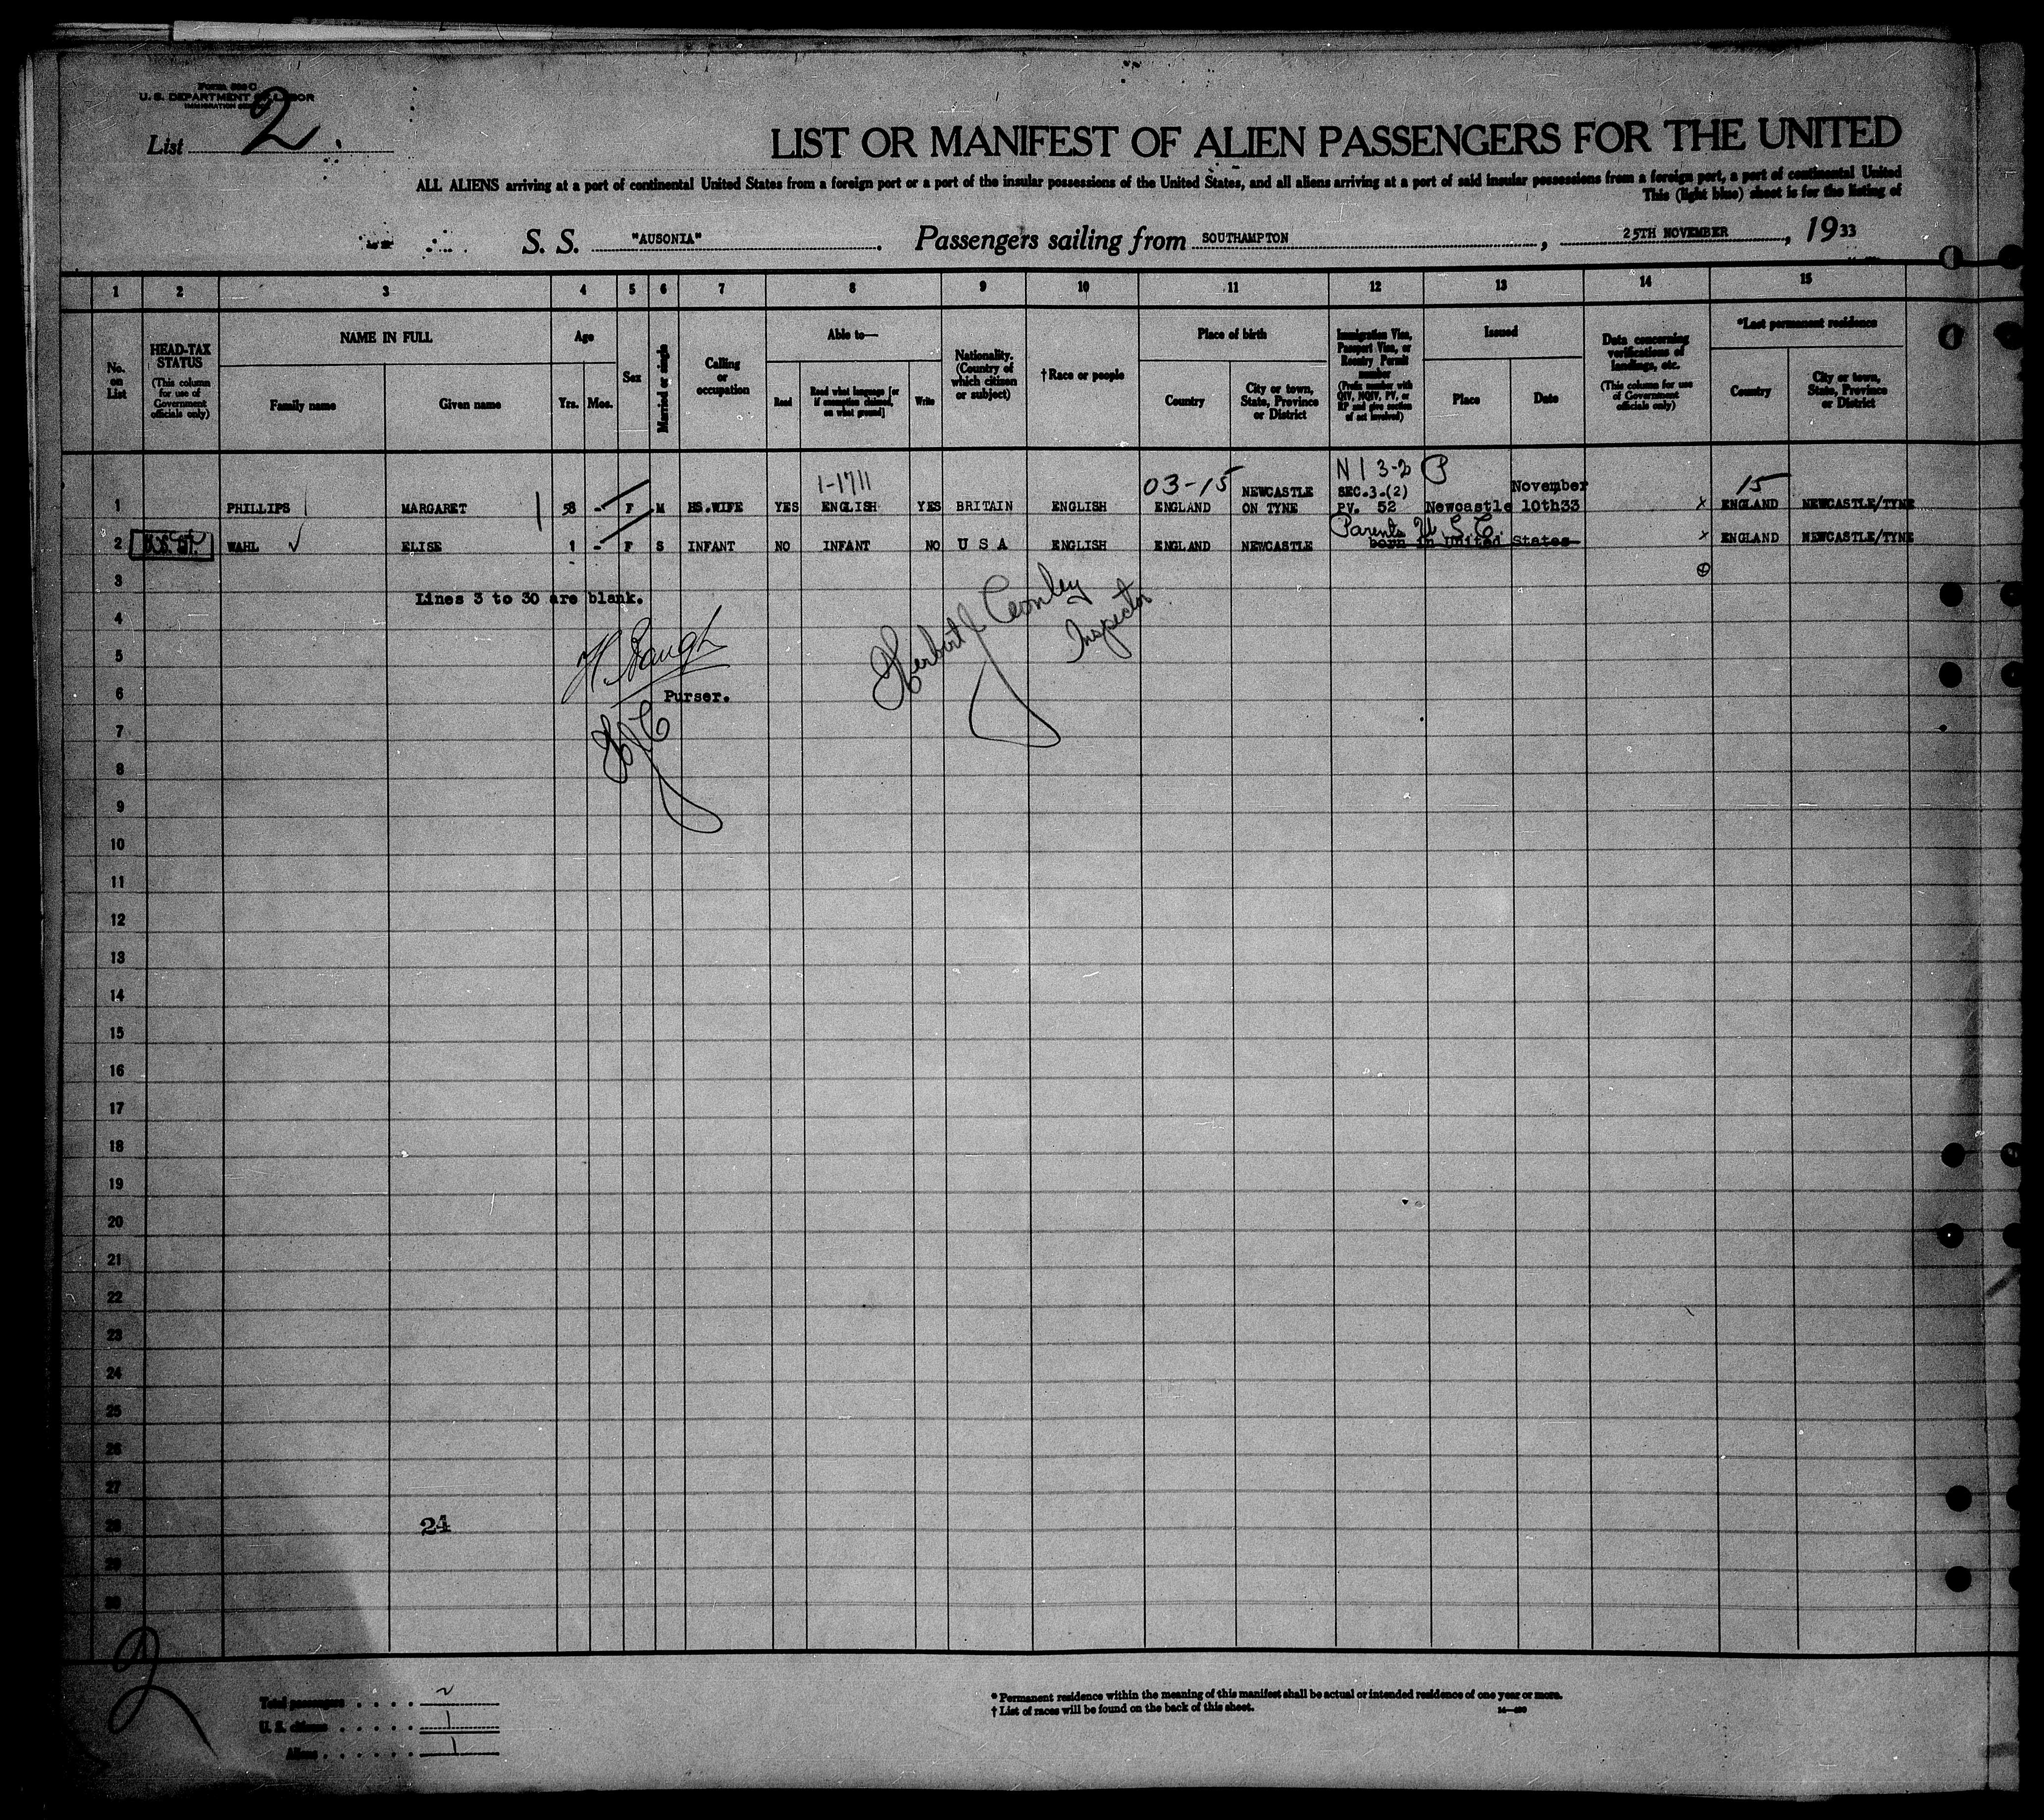 Form 500 C
U. S. DEPARTMENT OF LABOR
IMMIGRATION SERVICE
List 2.
LIST OR MANIFEST OF ALIEN PASSENGERS FOR THE UNITED
ALL ALIENS arriving at a port of continental United States from a foreign port or a port of the insular possessions of the United States, and all aliens arriving at a port of said insular possessions from a foreign port, a port of continental United
This (light blue) sheet is for the listing of
S. S. "AUSONIA". Passengers sailing from SOUTHAMPTON, 25TH NOVEMBER, 1933
1 2 3 4 5 6 7 8 9 10 11 12 13 14 15
No. on List
HEAD-TAX STATUS (This column for use of Government officials only)
NAME IN FULL
Family name
Given name
Age
Yrs. Mos.
Sex
Married or single
Calling or occupation
Able to—
Read
Read what language [or if exemption claimed, on what ground]
Write
Nationality. (Country of which citizen or subject)
† Race or people
Place of birth
Country
City or town, State, Province or District
Immigration Visa, Passport Visa, or Reentry Permit number (Prefix number with QIV, NQIV, PV, or RP and give section of act involved)
Issued
Place
Date
Data concerning verifications of landings, etc. (This column for use of Government officials only)
*Last permanent residence
Country
City or town, State, Province or District
1-1711 03-15 N I 3-2 P 15
1 PHILLIPS MARGARET 58 - F M HS.WIFE YES ENGLISH YES BRITAIN ENGLISH ENGLAND NEWCASTLE ON TYNE SEC.3.(2) PV. 52 Newcastle November 10th33 x ENGLAND NEWCASTLE/TYNE
Parents U S C.
2 U.S. CIT. WAHL ELISE 1 - F S INFANT NO INFANT NO U S A ENGLISH ENGLAND NEWCASTLE born in United States x ENGLAND NEWCASTLE/TYNE
3
Lines 3 to 30 are blank.
4
5
Inspector
6 Purser.
7
HJC
8
9
10
11
12
13
14
15
16
17
18
19
20
21
22
23
24
25
26
27
28 24
29
30
2
Total passengers . . . . 2
U. S. citizens . . . . . 1
Aliens . . . . . . 1
* Permanent residence within the meaning of this manifest shall be actual or intended residence of one year or more.
† List of races will be found on the back of this sheet.